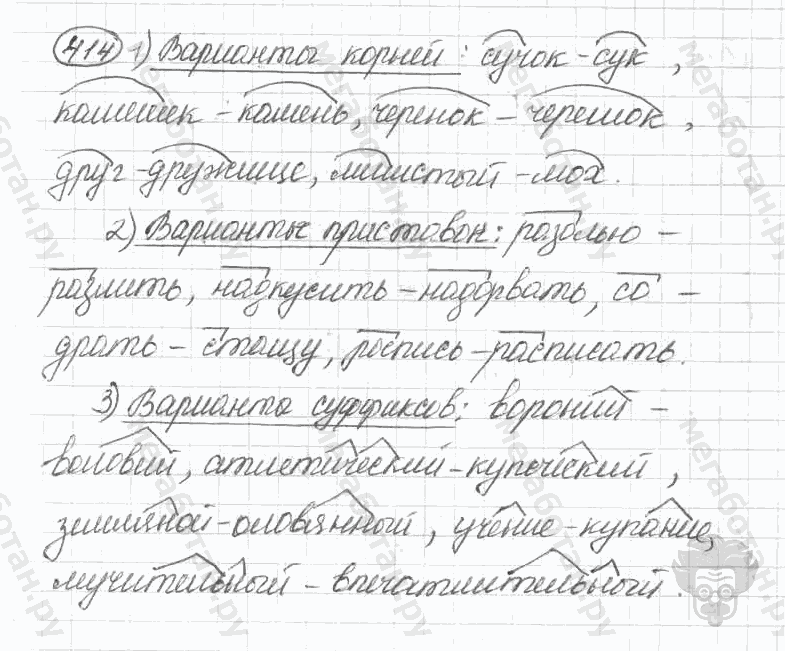 414 1) Варианты корней: сучок - сук,
камешек - камень, черенок - черешок,
друг - дружище, мшистый - мох.
2) Варианты приставок: разолью -
разлить, надкусить - надорвать, со -
драть - стащу, роспись - расписать.
3) Варианты суффиксов: вороний -
воловий, атлетический - купеческий,
земляной - оловянный, учение - купание,
мучительный - впечатлительный.
мегаботан.ру